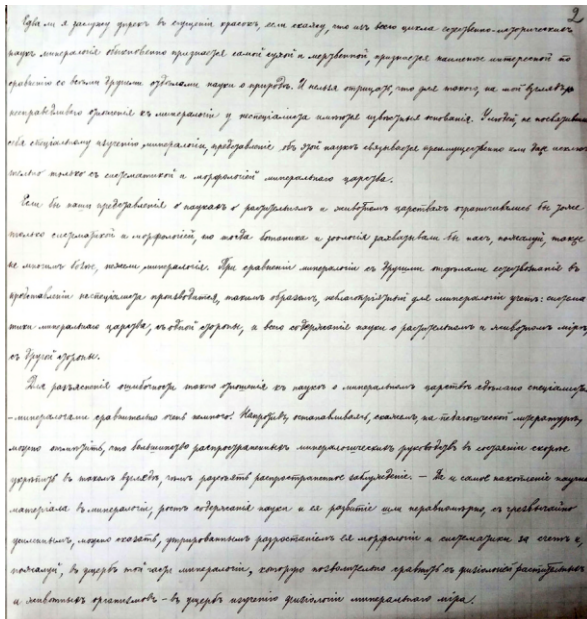 2
Едва ли я заслужу упрек в сгущеніи красокъ, если скажу, что изъ всего цикла естественно-историческихъ
наукъ минералогія обыкновенно признается самой сухой и мертвенной, признается наименее интересной по
сравненію со всеми другими отделами науки о природѣ. И нельзя отрицать, что для такого, на мой взглядъ,
несправедливаго отношенія къ минералогіи у неспеціалиста имѣются извѣстныя основанія. У людей, не посвятившихъ
себя спеціальному изученію минералогіи, представленіе объ этой наукѣ связывается преимущественно или даже исключи-
тельно только съ систематикой и морфологіей минеральнаго царства.
Если бы наши представленія о наукахъ о растительномъ и животномъ царствахъ ограничивались бы тоже
только систематикой и морфологіей, то тогда ботаника и зоологія захватывали бы насъ, пожалуй, также
не многимъ более, нежели минералогія. При сравненіи минералогіи съ другими отделами естествознанія въ
представленіи неспеціалиста производится, такимъ образомъ, неблагопріятный для минералогіи учетъ: система-
тики минеральнаго царства, съ одной стороны, и всего содержанія науки о растительномъ и животномъ мірѣ,
съ другой стороны.
Для разъясненія ошибочности такого отношенія къ наукѣ о минеральномъ царстве сделано спеціалистами
-минералогами сравнительно очень немного. Напротивъ, останавливаясь, скажемъ, на педагогической литературе,
можно отметить, что большинство распространенныхъ минералогическихъ руководствъ въ состояніи скорее
укрепить въ такомъ взгляде, чемъ разсеять распространенное заблужденіе. — Да и самое накопленіе научнаго
матеріала въ минералогіи, ростъ содержанія науки и ея развитіе шли неравномерно, съ чрезвычайно
усиленнымъ, можно сказать, утрированнымъ разростаніемъ ея морфологіи и систематики за счетъ и,
пожалуй, въ ущербъ той части минералогіи, которую позволительно сравнить съ физіологіей растительныхъ
и животныхъ организмовъ – въ ущербъ изученію физіологіи минеральнаго міра.